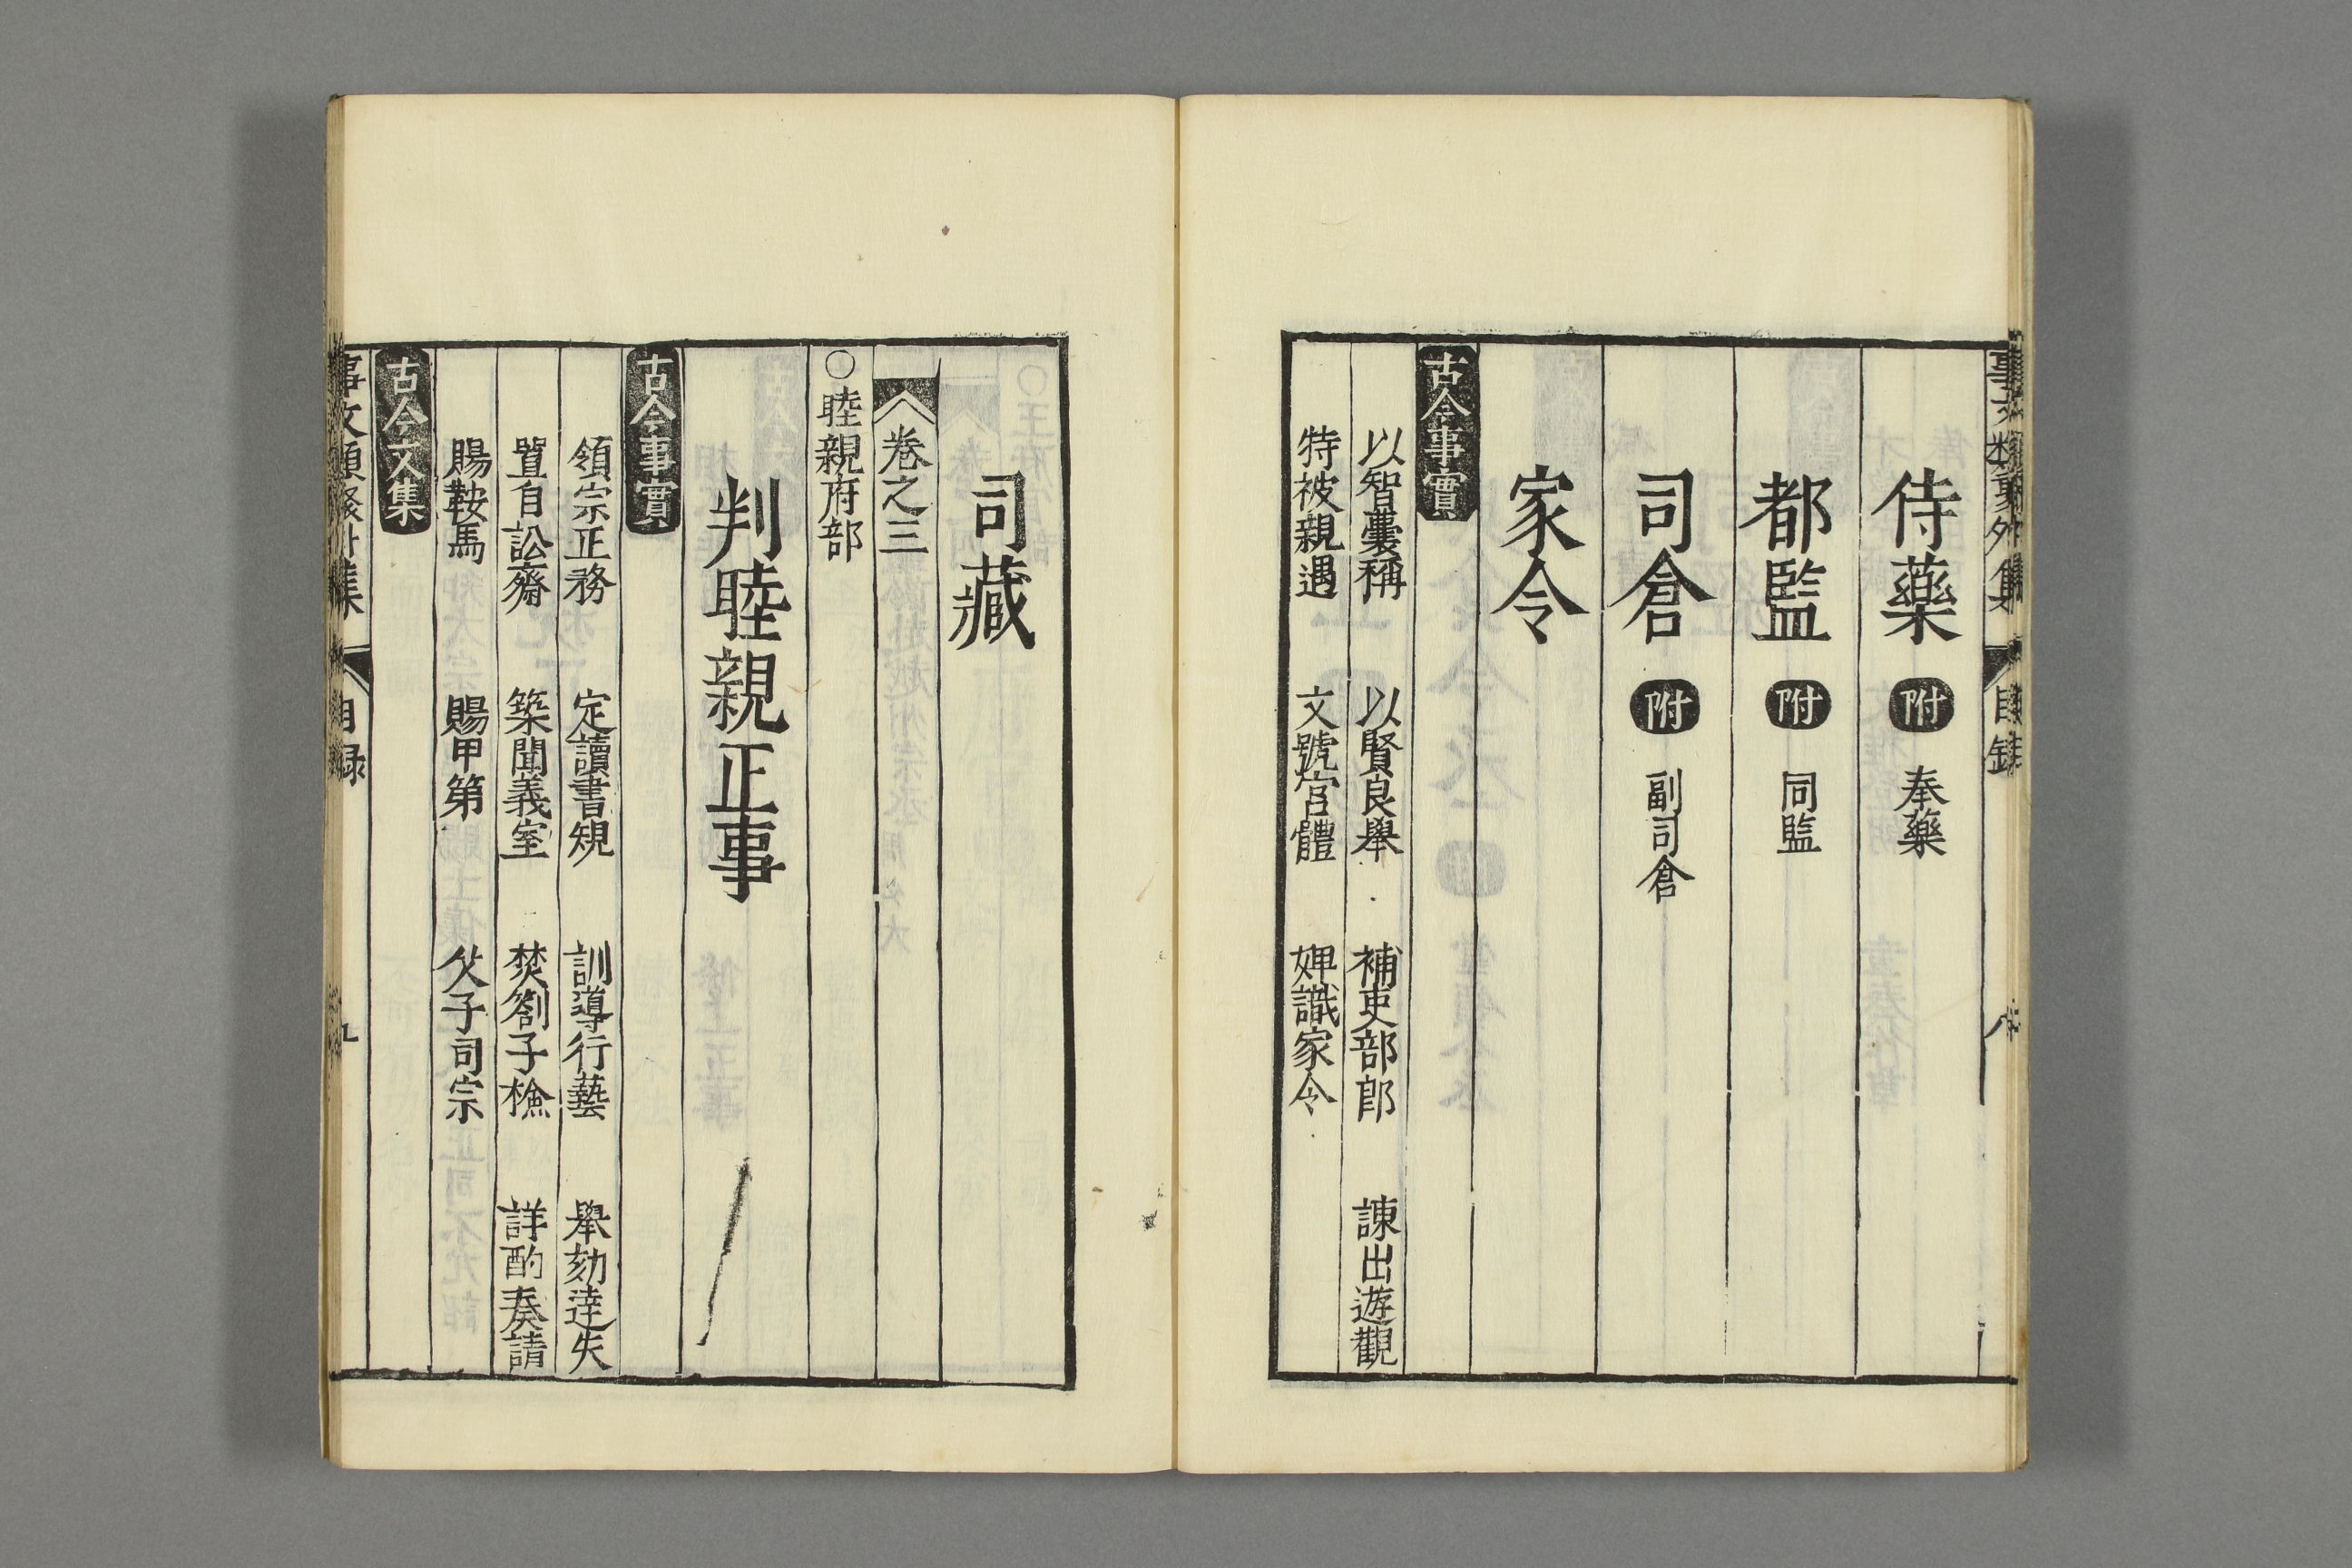 事文類聚外集 目錄 八
侍藥 附 奉藥
都監 附 同監
司倉 附 副司倉
家令
古今事實
以智囊稱 以賢良舉 補吏部郎 諫出遊觀
特被親遇 文號宮體 婢識家令
司藏
卷之三
○睦親府部
判睦親正事
古今事實
領宗正務 定讀書規 訓導行藝 舉劾違失
置自訟齋 築聞義室 焚劄子檢 詳酌奏請
賜鞍馬 賜甲第 父子司宗
古今文集
事文類聚外集 目録